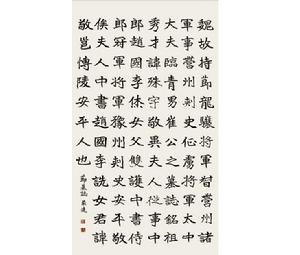 魏故持節龍驤將軍督營州諸
軍事營州刺史征虜將軍太中
大夫臨青男崔公之墓誌銘祖
秀才諱殊字敬異夫人從事中
郎趙國李休女父雙護中書侍
郎冠軍將軍豫州刺史安平敬
侯夫人中書趙國李詵女君諱
敬邕博陵安平人也